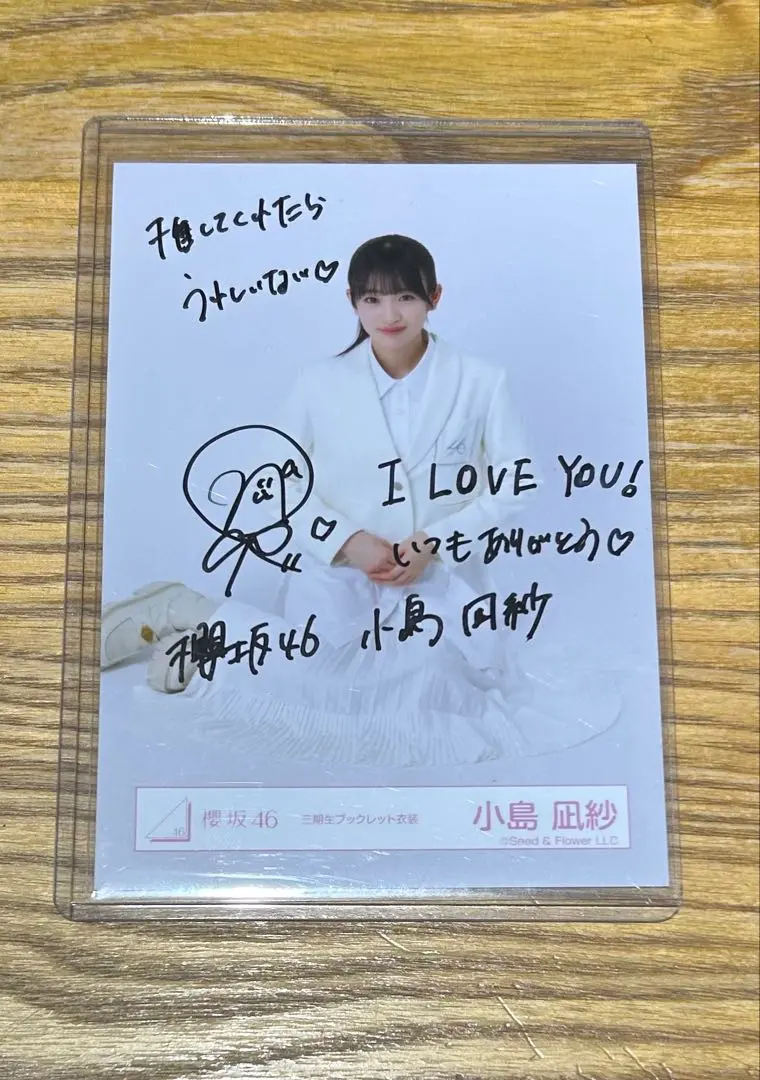 推してくれたら
うれしいなぁ♡
46
I LOVE YOU!
いつもありがとう♡
櫻坂46 小島凪紗
46
櫻坂46 三期生ブックレット衣装 小島 凪紗
©Seed & Flower LLC